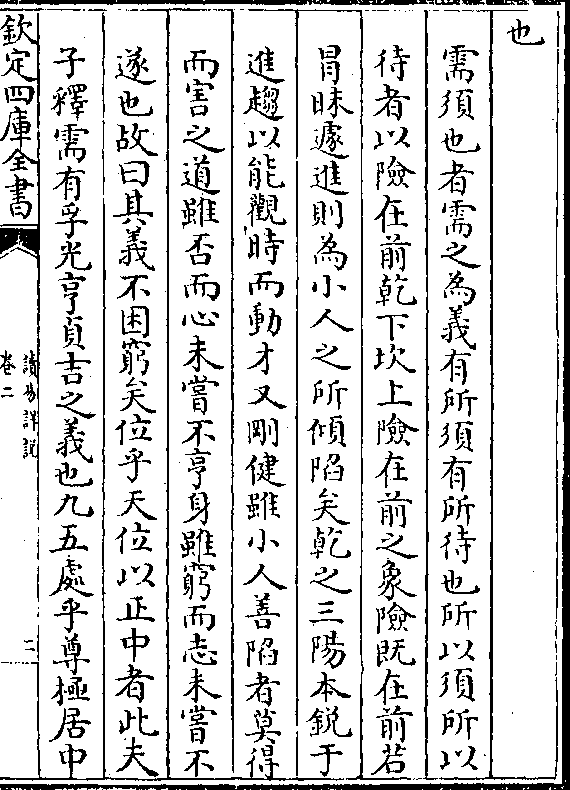 也
需須也者需之為義有所須有所待也所以須所以
待者以險在前乾下坎上險在前之象險既在前若
冐昧遽進則為小人之所傾陷矣乾之三陽本鋭于
進趨以能觀時而動才又剛健雖小人善陷者莫得
而害之道雖否而心未嘗不亨身雖窮而志未嘗不
遂也故曰其義不困窮矣位乎天位以正中者此夫
子釋需有孚光亨貞吉之義也九五處乎尊極居中
欽定四庫全書
讀易詳說
卷二
二